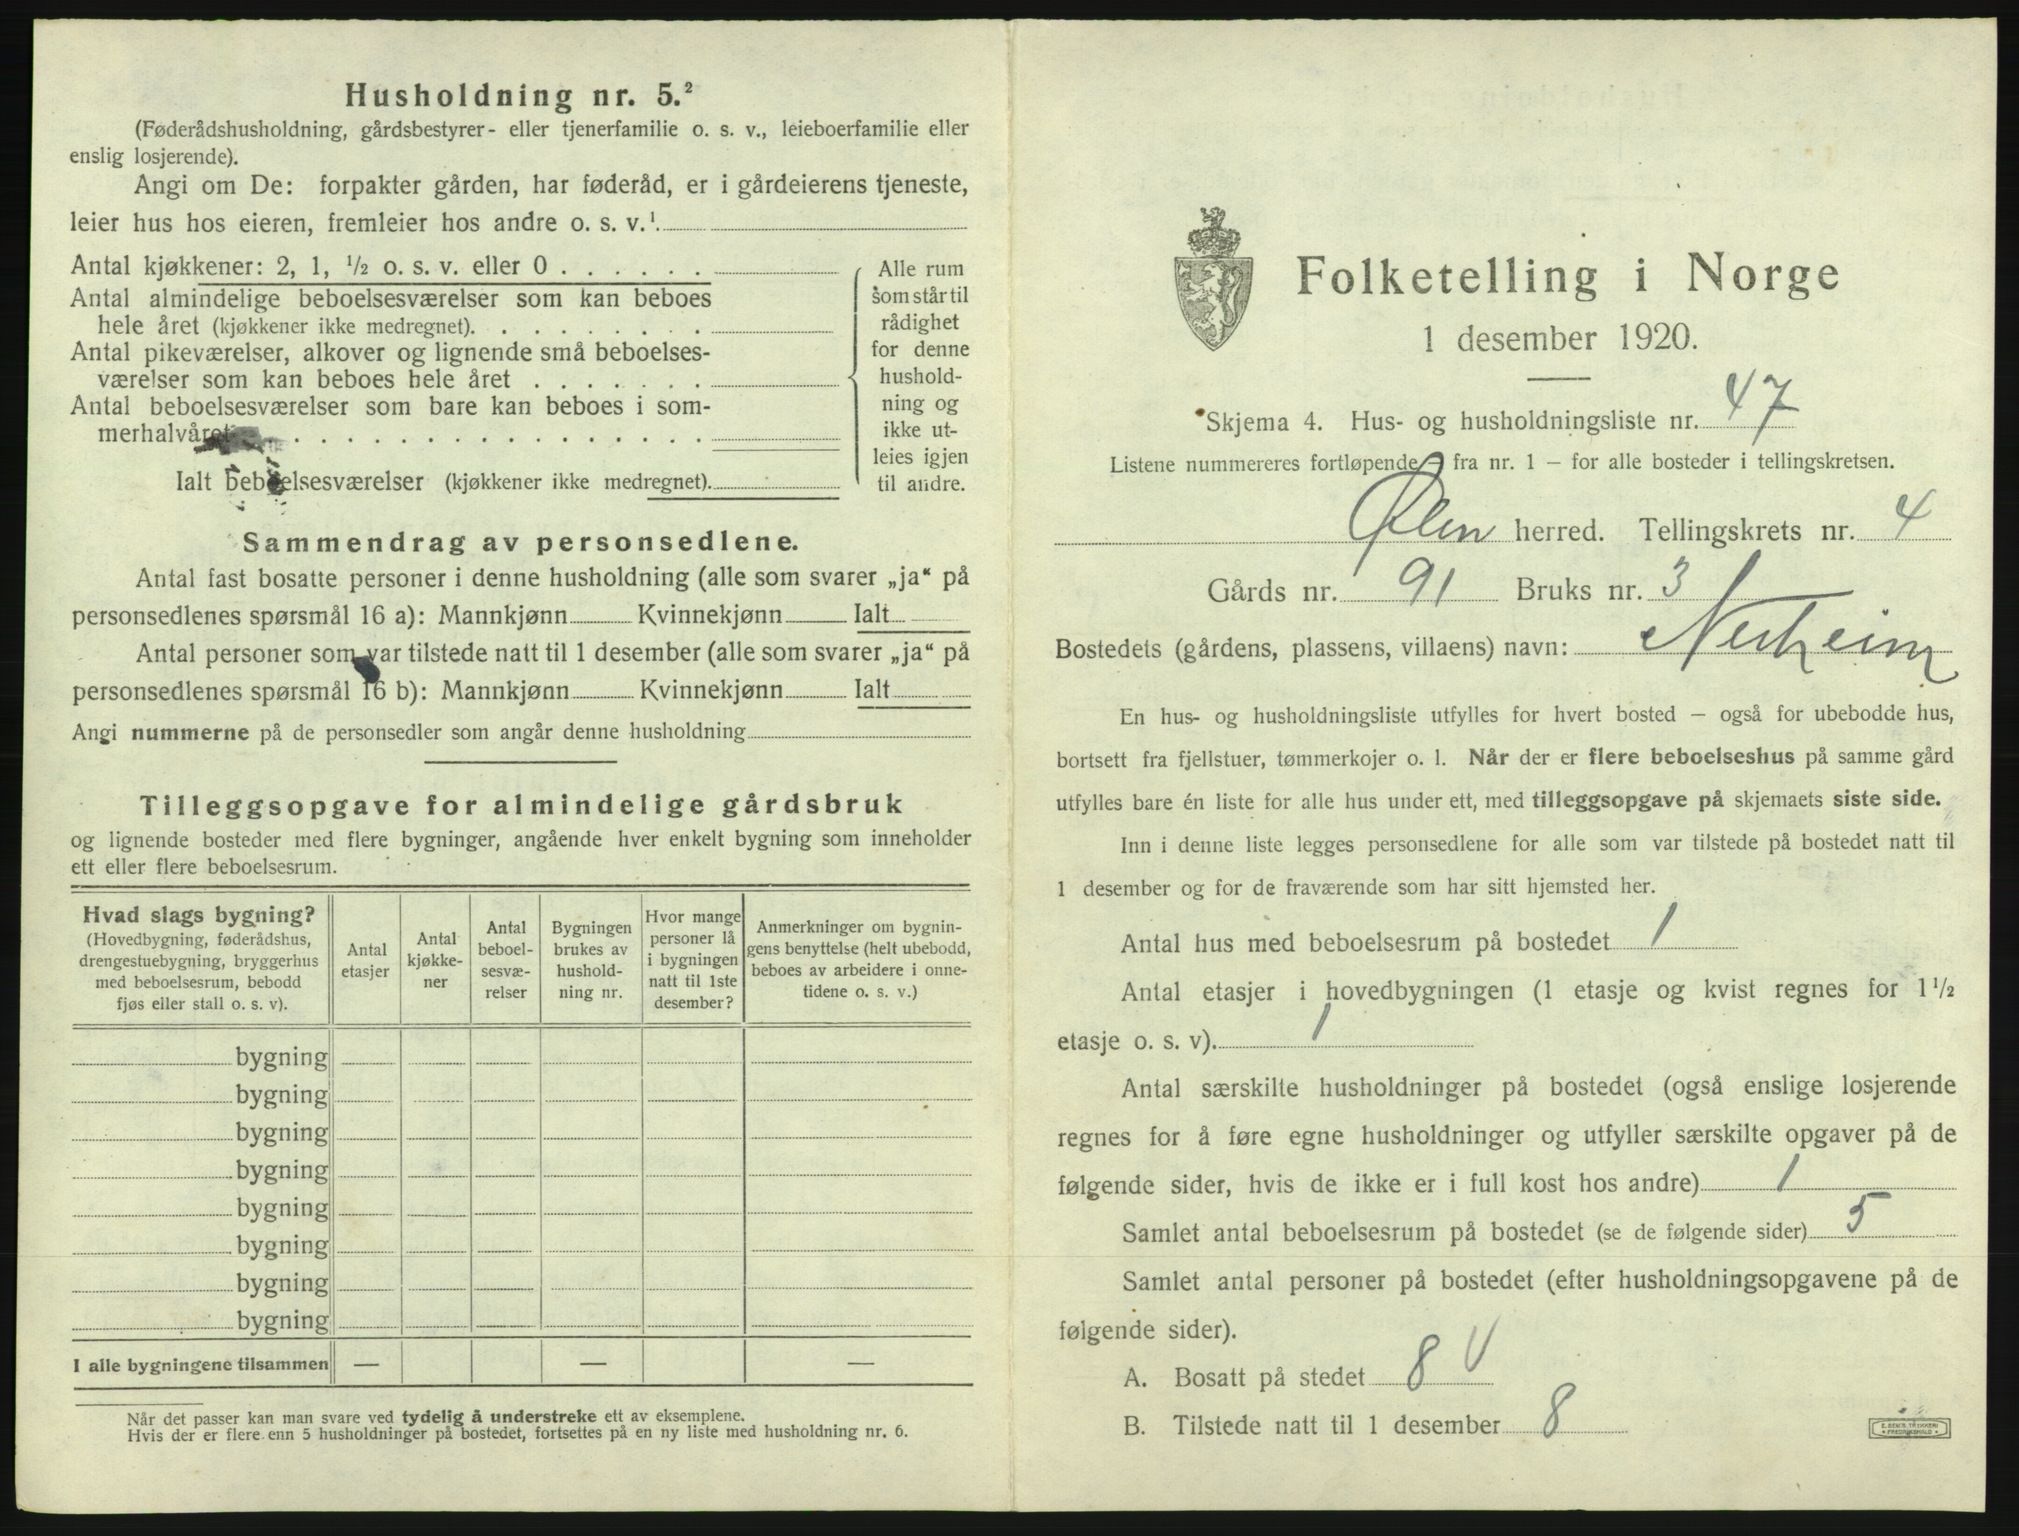 Husholdning nr. 5.²
(Føderådshusholdning, gårdsbestyrer- eller tjenerfamilie o. s. v., leieboerfamilie eller
enslig losjerende).
Angi om De: forpakter gården, har føderåd, er i gårdeierens tjeneste,
leier hus hos eieren, fremleier hos andre o. s. v.¹.
Antal kjøkkener: 2, 1, ½ o. s. v. eller 0 . . . . . .
Antal almindelige beboelsesværelser som kan beboes
hele året (kjøkkener ikke medregnet). . . . . . . . .
Antal pikeværelser, alkover og lignende små beboelses-
værelser som kan beboes hele året . . . . . . .
Antal beboelsesværelser som bare kan beboes i som-
merhalvåret . . . . . . . . . . . . . . . . .
Ialt beboelsesværelser (kjøkkener ikke medregnet).
Alle rum
som står til
rådighet
for denne
hushold-
ning og
ikke ut-
leies igjen
til andre.
Sammendrag av personsedlene.
Antal fast bosatte personer i denne husholdning (alle som svarer „ja“ på
personsedlenes spørsmål 16 a): Mannkjønn Kvinnekjønn Ialt
Antal personer som var tilstede natt til 1 desember (alle som svarer „ja“ på
personsedlenes spørsmål 16 b): Mannkjønn Kvinnekjønn Ialt
Angi nummerne på de personsedler som angår denne husholdning
Tilleggsopgave for almindelige gårdsbruk
og lignende bosteder med flere bygninger, angående hver enkelt bygning som inneholder
ett eller flere beboelsesrum.
Hvad slags bygning?
(Hovedbygning, føderådshus,
drengestuebygning, bryggerhus
med beboelsesrum, bebodd
fjøs eller stall o. s. v).
Antal
etasjer
Antal
kjøkke-
ner
Antal
beboel-
sesvæ-
relser
Bygningen
brukes av
hushold-
ning nr.
Hvor mange
personer lå
i bygningen
natt til 1ste
desember?
Anmerkninger om bygnin-
gens benyttelse (helt ubebodd,
beboes av arbeidere i onne-
tidene o. s. v.)
bygning
bygning
bygning
bygning
bygning
bygning
bygning
bygning
I alle bygningene tilsammen — — —
Når det passer kan man svare ved tydelig å understreke ett av eksemplene.
Hvis der er flere enn 5 husholdninger på bostedet, fortsettes på en ny liste med husholdning nr. 6.
Folketelling i Norge
1 desember 1920.
Skjema 4. Hus- og husholdningsliste nr. 47
Listene nummereres fortløpende – fra nr. 1 – for alle bosteder i tellingskretsen.
Ølen herred. Tellingskrets nr. 4
Gårds nr. 91 Bruks nr. 3
Bostedets (gårdens, plassens, villaens) navn: Nerheim
En hus- og husholdningsliste utfylles for hvert bosted – også for ubebodde hus,
bortsett fra fjellstuer, tømmerkojer o. l. Når der er flere beboelseshus på samme gård
utfylles bare én liste for alle hus under ett, med tilleggsopgave på skjemaets siste side.
Inn i denne liste legges personsedlene for alle som var tilstede på bostedet natt til
1 desember og for de fraværende som har sitt hjemsted her.
Antal hus med beboelsesrum på bostedet 1
Antal etasjer i hovedbygningen (1 etasje og kvist regnes for 1½
etasje o. s. v). 1
Antal særskilte husholdninger på bostedet (også enslige losjerende
regnes for å føre egne husholdninger og utfyller særskilte opgaver på de
følgende sider, hvis de ikke er i full kost hos andre) 1
Samlet antal beboelsesrum på bostedet (se de følgende sider) 5
Samlet antal personer på bostedet (efter husholdningsopgavene på de
følgende sider).
A. Bosatt på stedet 8 V
B. Tilstede natt til 1 desember 8